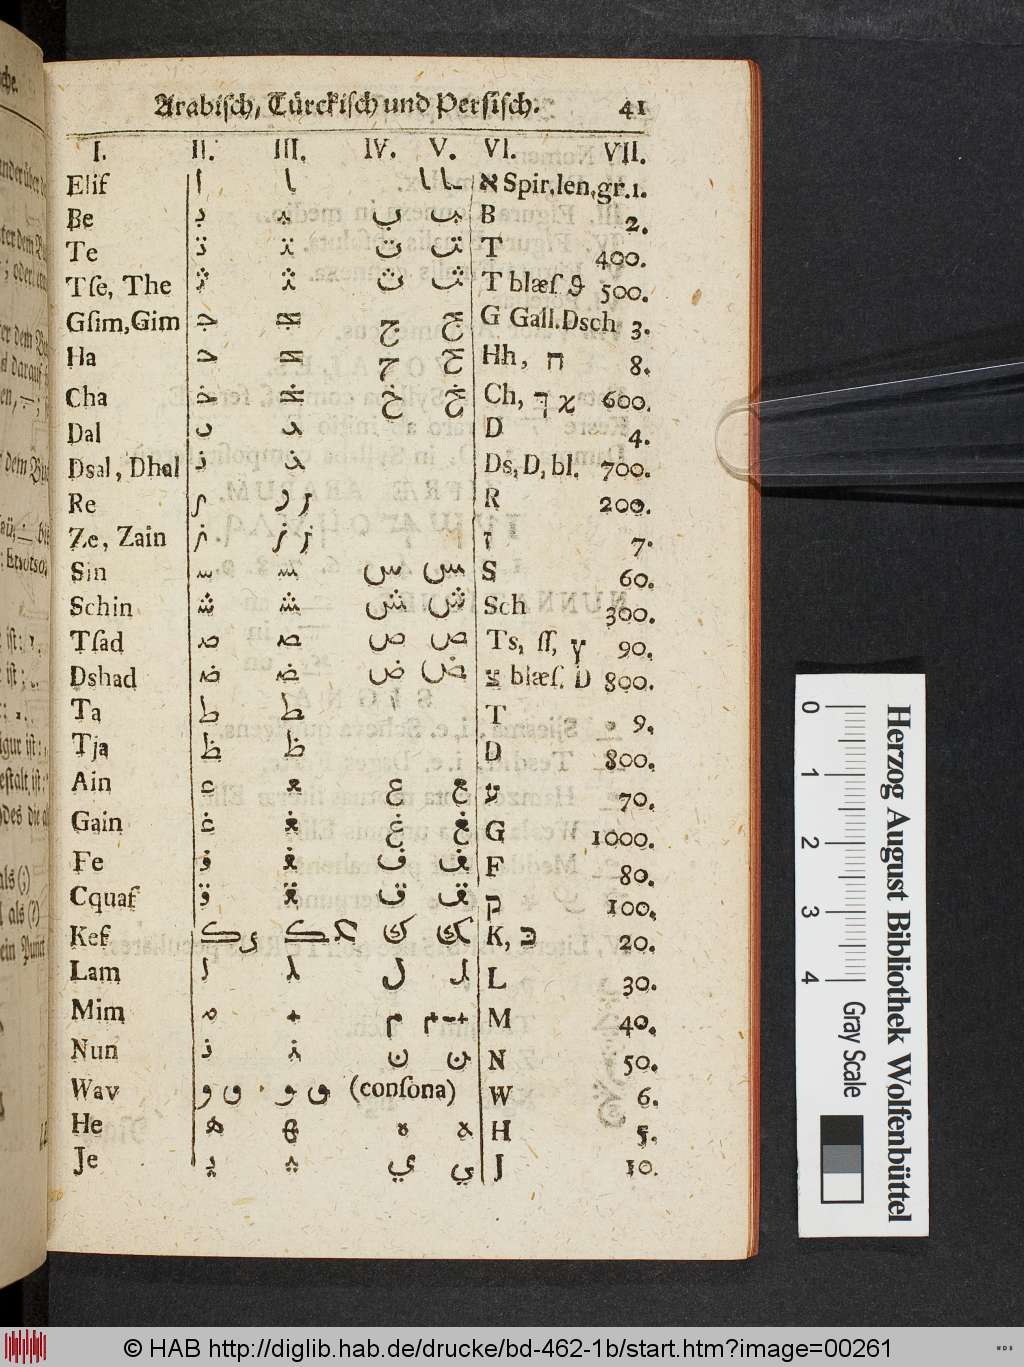 Arabisch, Türckisch und Persisch. 41
I. II. III. IV. V. VI. VII.
Elif ا ـا ا ـا א Spir. len. gr. 1.
Be بـ ـبـ ب ـب B 2.
Te تـ ـتـ ت ـت T 400.
Tſe, The ثـ ـثـ ث ـث T blæſ ϑ 500.
Gſim, Gim جـ ـجـ ج ـج G Gall. Dsch 3.
Ha حـ ـحـ ح ـح Hh, ח 8.
Cha خـ ـخـ خ ـخ Ch, ך χ 600.
Dal د ـد D 4.
Dsal, Dhal ذ ـذ Ds, D, bl. 700.
Re ر ـر ر R 200.
Ze, Zain ز ـز ز ז 7.
Sin سـ ـسـ س ـس S 60.
Schin شـ ـشـ ش ـش Sch 300.
Tſad صـ ـصـ ص ـص Ts, ſſ, ץ 90.
Dshad ضـ ـضـ ض ـض צ blæſ. D 800.
Ta ط ـط T 9.
Tja ظ ـظ D 800.
Ain عـ ـعـ ع ـع ע 70.
Gain غـ ـغـ غ ـغ G 1000.
Fe فـ ـفـ ف ـف F 80.
Cquaf قـ ـقـ ق ـق ק 100.
Kef کـ ـکـ ك ـك K, כ 20.
Lam لـ ـلـ ل ـل L 30.
Mim مـ ـمـ م ـم M 40.
Nun نـ ـنـ ن ـن N 50.
Wav و و و و (conſona) W 6.
He هـ ـهـ ه ـه H 5.
Je يـ ـيـ ي ـي J 10.
0 1 2 3 4
Gray Scale
Herzog August Bibliothek Wolfenbüttel
© HAB http://diglib.hab.de/drucke/bd-462-1b/start.htm?image=00261